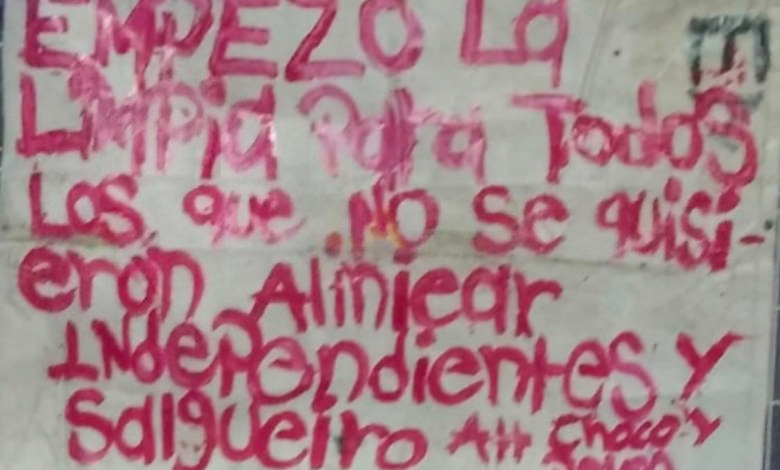 EMPEZO La
LimPia Para Todos
Los que NO se quisi-
eron Alinicar
INdePendientes Y
Salgueiro Att Choco Y